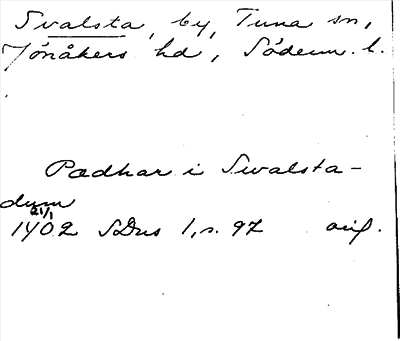 Svalsta, by, Tuna sn,
Jönåkers hd, Söderm. l.
Pædhar i Swalsta-
dum
21/1
1402 SDns 1, s. 97 orig.